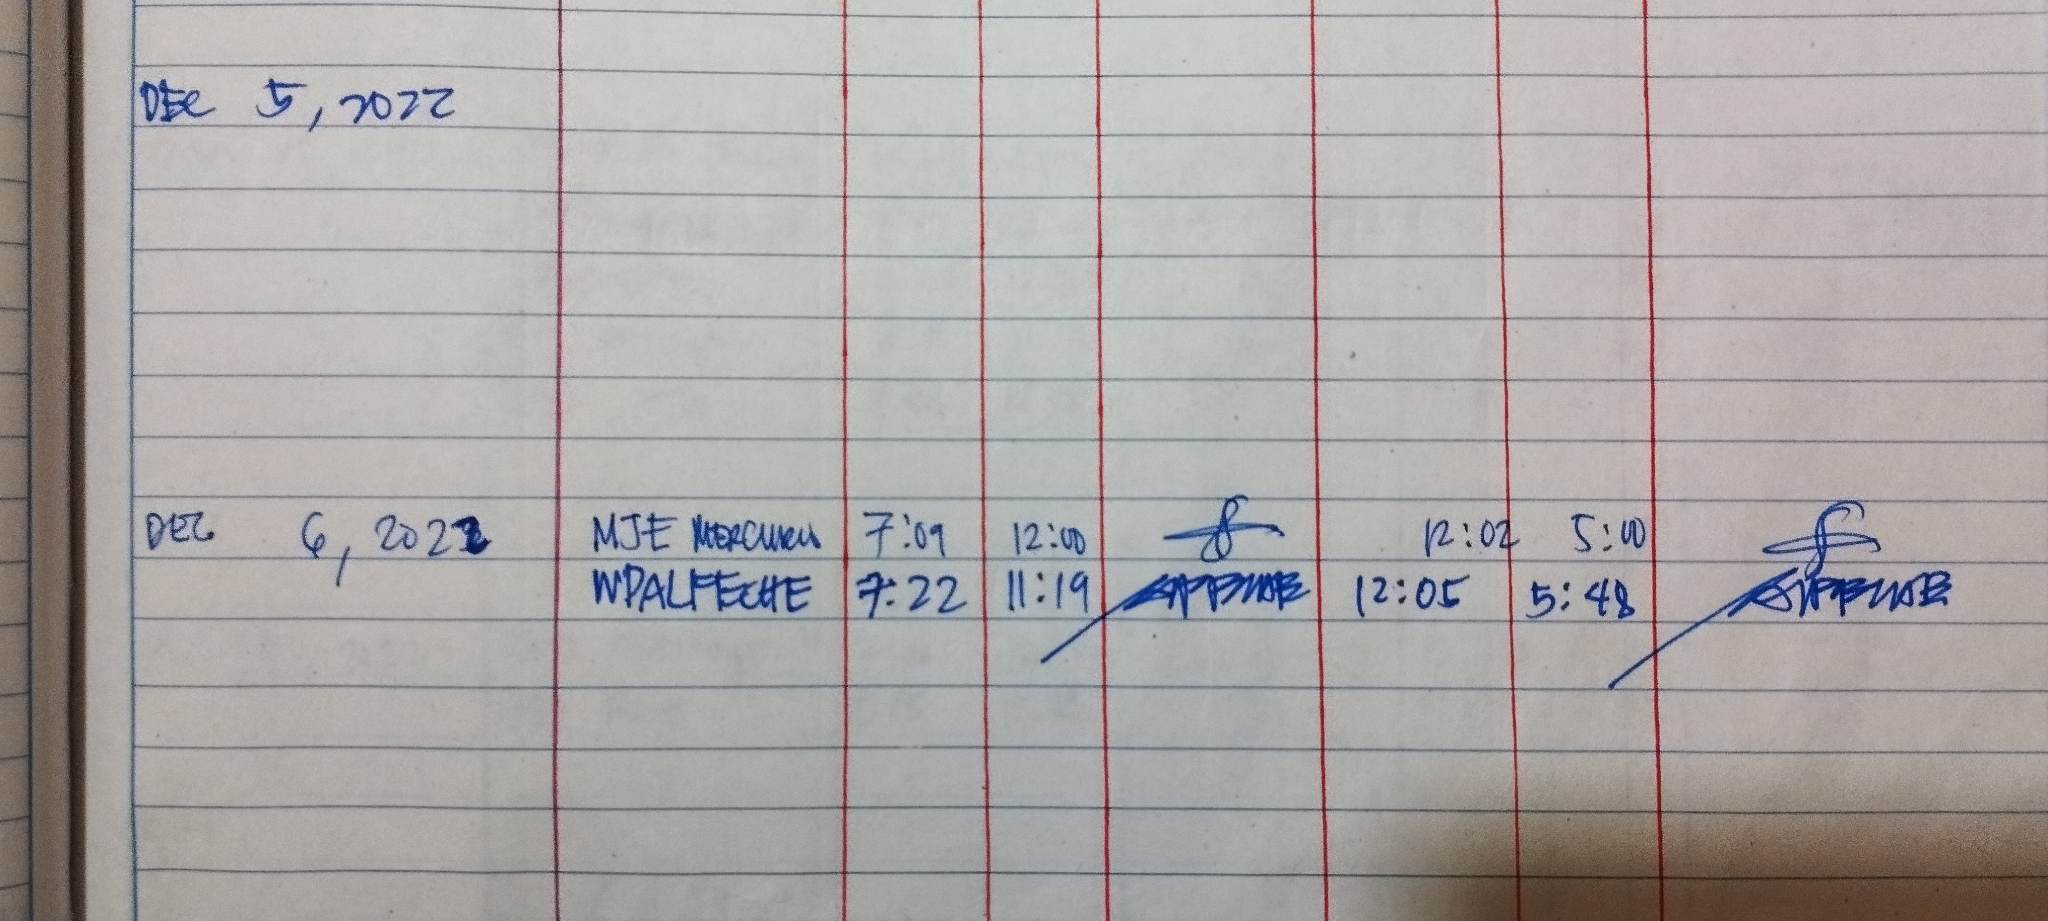 DEC 5, 2022
DEC 6, 2022 MJE 7:09 12:00 12:02 5:00
WPALFECHE 7:22 11:19 12:05 5:48